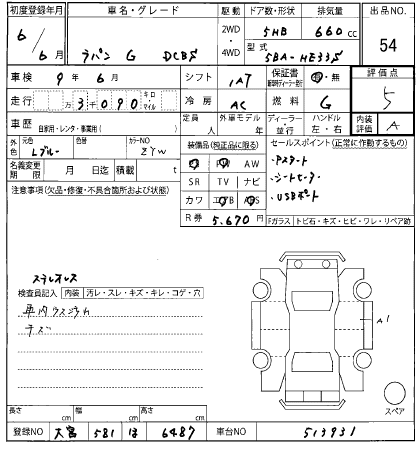 初度登録年月 車名・グレード 駆動 ドア数・形状 排気量 出品NO.
6/6月 ラパン G DCBS 2WD・4WD 5HB 660cc 54
型式 5BA-HE33S
車検 9年6月 シフト IAT 保証書 有・無 評価点
走行 万3千090 キロ マイル 冷房 AC 燃料 G 5
車歴 自家用・レンタ・事業用( ) 定員 人 外車モデル 年 ディーラー・並行 ハンドル 左・右 内装評価 A
外色 元色 Lブルー 色替 カラーNO ZYW
装備品(純正品に限る) セールスポイント(正常に作動するもの)
名義変更期限 月 日迄 積載 t
PS PW AW
SR TV ナビ
カワ エアB ABS
・Pスタート
・シートヒーター
・USBポート
注意事項(欠品・修復・不具合箇所および状態)
R券 5,670円
Fガラス トビ石・キズ・ヒビ・ワレ・リペア跡
ステレオレス
検査員記入 内装 汚レ・スレ・キズ・キレ・コゲ・穴
車内ウスヨゴレ
キズ
A1
スペア
長さ cm 幅 cm 高さ cm
登録NO 大宮 581 ほ 6487 車台NO 513931